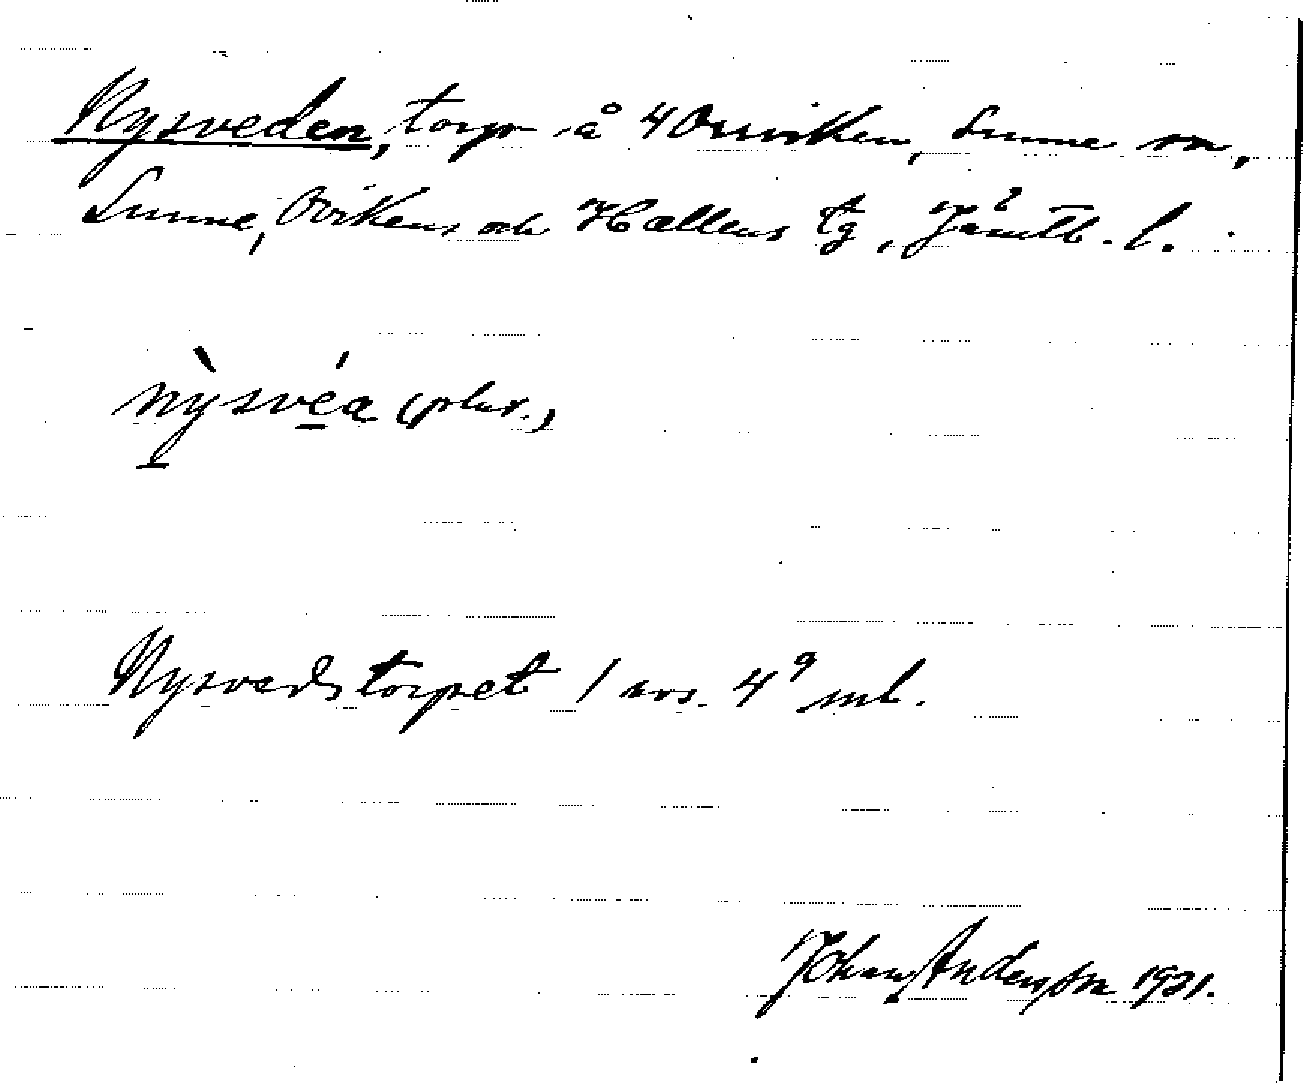 Nysveden, torp å 4 Orrviken, Sunne sn,
Sunne, Ovikens och Hallens tg, Jämtl. l.
nỳsvéa (plur.)
Nysvedstorpet 1 avs. 4⁹ mtl.
Johan Andersson 1931.